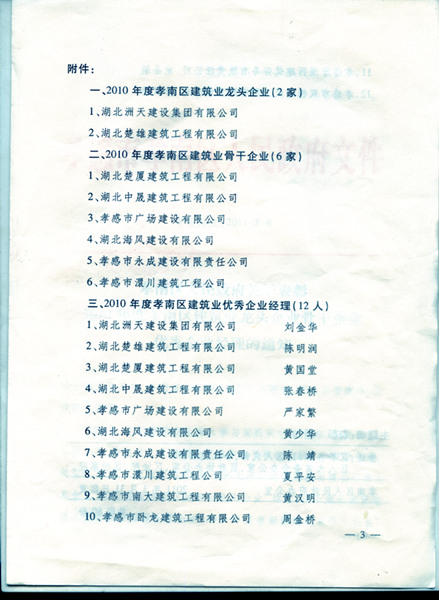 附件：
一、2010 年度孝南区建筑业龙头企业(2 家)
1、湖北洲天建设集团有限公司
2、湖北楚雄建筑工程有限公司
二、2010 年度孝南区建筑业骨干企业(6 家)
1、湖北楚厦建筑工程有限公司
2、湖北中晟建筑工程有限公司
3、孝感市广场建设有限公司
4、湖北海风建设有限公司
5、孝感市永成建设有限责任公司
6、孝感市澴川建筑工程公司
三、2010 年度孝南区建筑业优秀企业经理(12 人)
1、湖北洲天建设集团有限公司 刘金华
2、湖北楚雄建筑工程有限公司 陈明润
3、湖北楚厦建筑工程有限公司 黄国堂
4、湖北中晟建筑工程有限公司 张春桥
5、孝感市广场建设有限公司 严家繁
6、湖北海风建设有限公司 黄少华
7、孝感市永成建设有限责任公司 陈 靖
8、孝感市澴川建筑工程公司 夏平安
9、孝感市南大建筑工程有限公司 黄汉明
10、孝感市卧龙建筑工程有限公司 周金桥
— 3 —